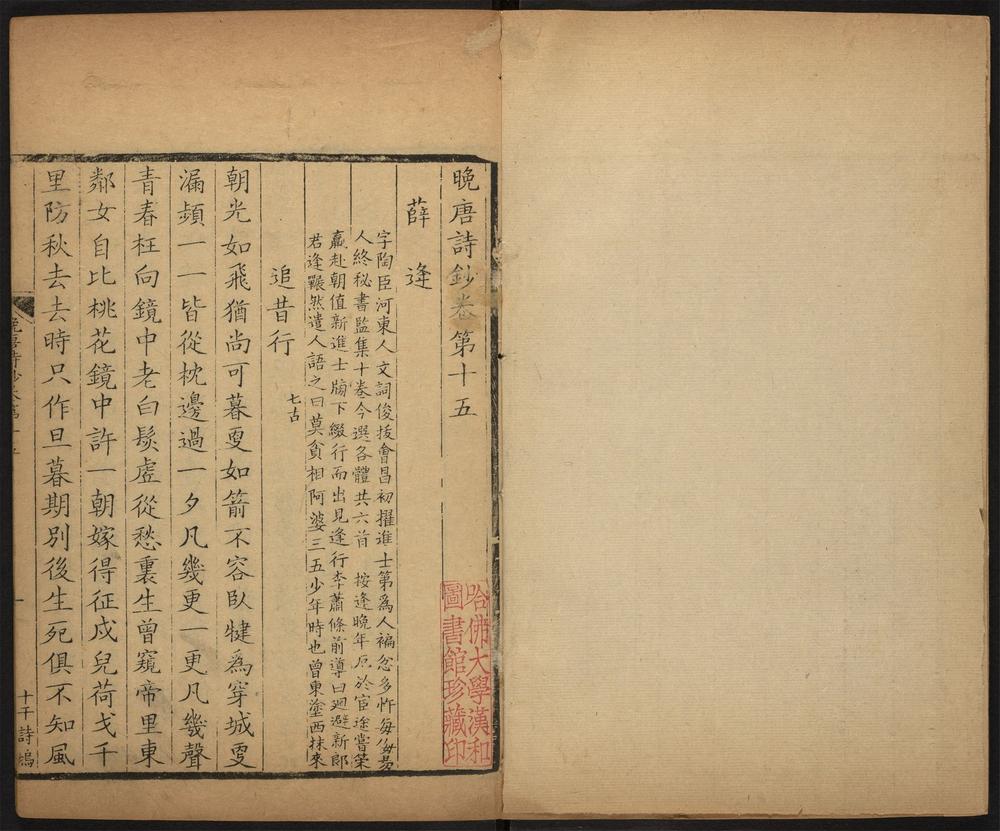 晚唐詩鈔卷第十五
哈佛大學漢和
圖書館珍藏印
薛逢
字陶臣河東人文詞俊拔會昌初擢進士第為人褊忿多忤每侮易
人終秘書監集十卷今選各體共六首 按逢晚年厄於宦途嘗榮
羸赴朝值新進士牓下綴行而出見逢行李蕭條前導曰廻避新郎
君逢囅然遣人語之曰莫貪相阿婆三五少年時也曾東塗西抹來
追昔行 七古
朝光如飛猶尚可暮更如箭不容臥犍為穿城更
漏頻一一皆從枕邊過一夕凡幾更一更凡幾聲
青春枉向鏡中老白髮虛從愁裏生曾窺帝里東
鄰女自比桃花鏡中許一朝嫁得征戍兒荷戈千
里防秋去去時只作旦暮期別後生死俱不知風
晚唐詩鈔
詩塢